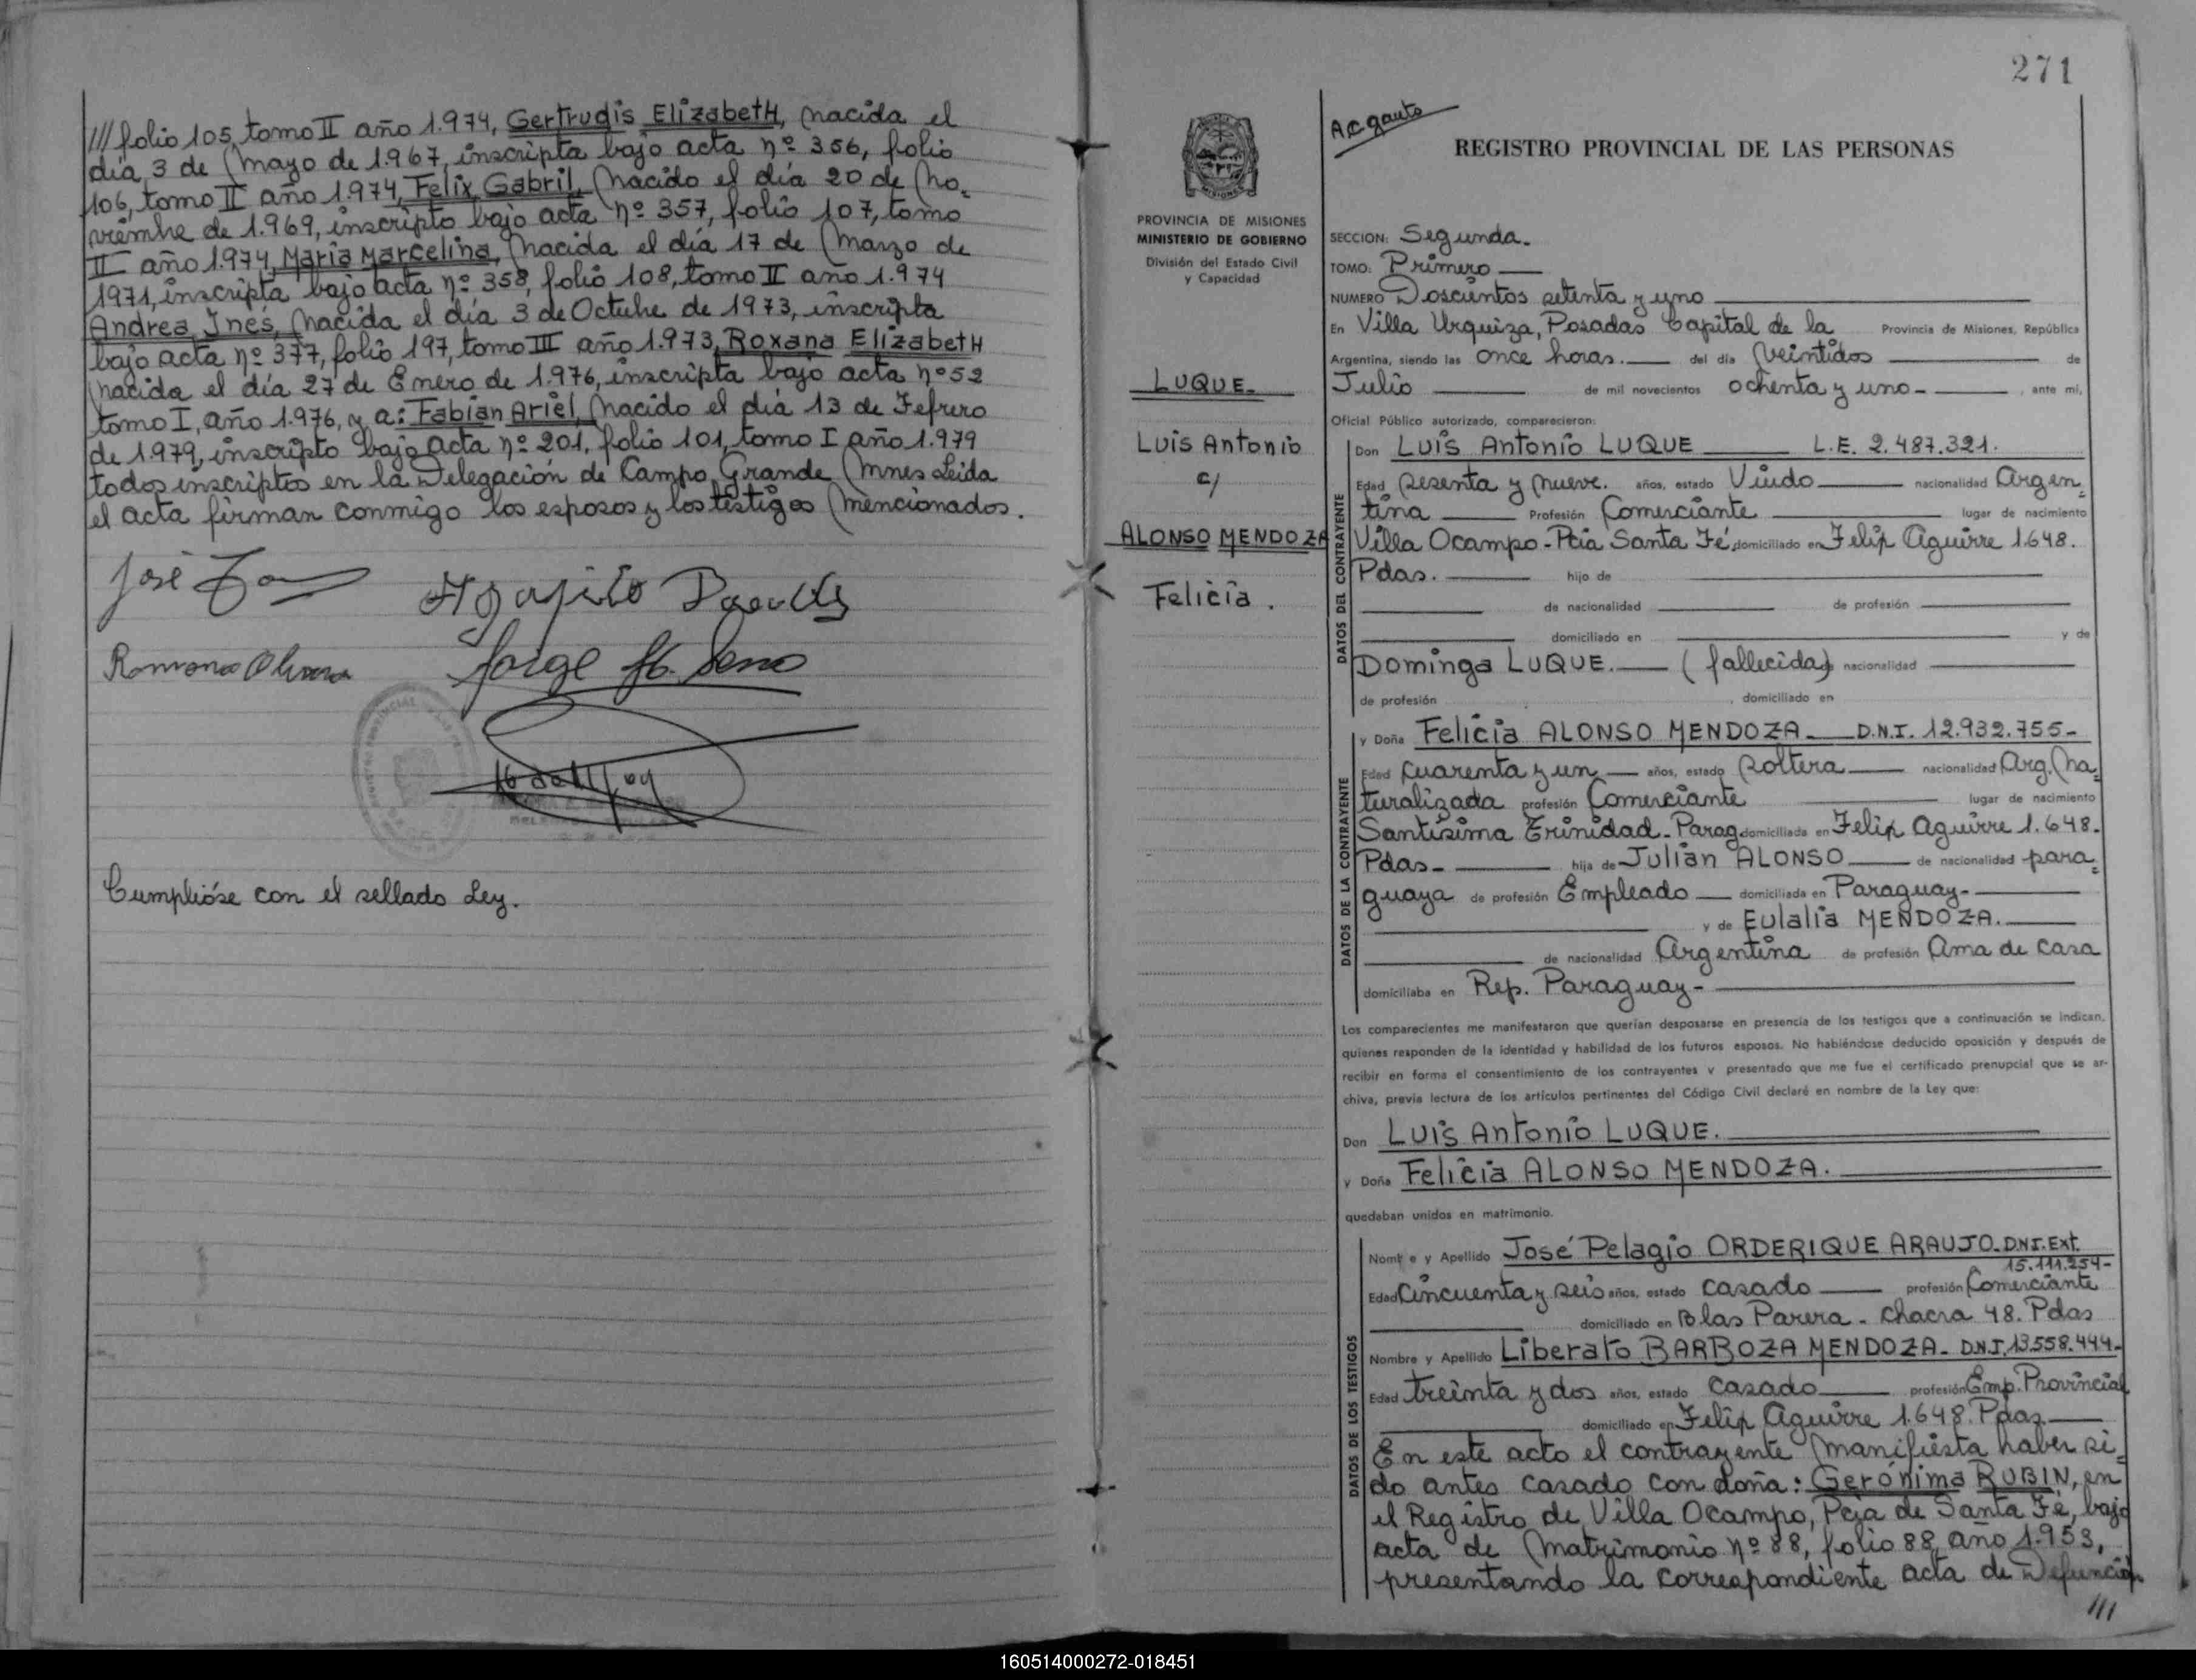 /// folio 105, tomo II año 1.974, Gertrudis Elizabeth, nacida el
día 3 de mayo de 1.967, inscripta bajo acta nº 356, folio
106, tomo II año 1.974, Felix Gabril, nacido el día 20 de no=
viembre de 1.969, inscripto bajo acta nº 357, folio 107, tomo
II año 1.974, María Marcelina, nacida el día 17 de Marzo de
1971, inscripta bajo acta nº 358, folio 108, tomo II año 1.974
Andrea Inés, nacida el día 3 de Octubre de 1973, inscripta
bajo acta nº 377, folio 197, tomo III año 1.973, Roxana Elizabeth
nacida el día 27 de Enero de 1.976, inscripta bajo acta nº 52
tomo I, año 1.976, y a: Fabian Ariel, nacido el día 13 de Febrero
de 1.979, inscripto bajo acta nº 201, folio 101, tomo I año 1.979
todos inscriptos en la Delegación de Campo Grande Mnes Leida
el acta firman conmigo los esposos y los testigos mencionados.
José
Ramona Olivera
Jorge
Cumplióse con el sellado Ley.
271
PROVINCIA DE MISIONES
MINISTERIO DE GOBIERNO
División del Estado Civil
y Capacidad
LUQUE-
Luis Antonio
c/
ALONSO MENDOZA
Felicia.
REGISTRO PROVINCIAL DE LAS PERSONAS
SECCION: Segunda.
TOMO: Primero
NUMERO Doscientos setenta y uno
En Villa Urquiza, Posadas Capital de la Provincia de Misiones, República
Argentina, siendo las once horas. del día veintidos de
Julio de mil novecientos ochenta y uno- , ante mi,
Oficial Público autorizado, comparecieron:
DATOS DEL CONTRAYENTE
Don Luis Antonio LUQUE L.E. 2.487.321.
Edad sesenta y nueve. años, estado Viudo nacionalidad Argen=
tina Profesión Comerciante lugar de nacimiento
Villa Ocampo-Pcia Santa Fé domiciliado en Felix Aguirre 1648.
Pdas. hijo de
de nacionalidad de profesión
domiciliado en y de
Dominga LUQUE. (fallecida) nacionalidad
de profesión domiciliado en
DATOS DE LA CONTRAYENTE
y Doña Felicia ALONSO MENDOZA- D.N.I. 12.932.755-
Edad cuarenta y un años, estado soltera nacionalidad Arg. na=
turalizada profesión Comerciante lugar de nacimiento
Santísima Trinidad-Parag domiciliada en Felix Aguirre 1.648.
Pdas- hija de Julián ALONSO de nacionalidad para=
guaya de profesión Empleado domiciliada en Paraguay-
y de Eulalia MENDOZA.
de nacionalidad Argentina de profesión Ama de Casa
domiciliaba en Rep. Paraguay-
Los comparecientes me manifestaron que querían desposarse en presencia de los testigos que a continuación se indican,
quienes responden de la identidad y habilidad de los futuros esposos. No habiéndose deducido oposición y después de
recibir en forma el consentimiento de los contrayentes y presentado que me fue el certificado prenupcial que se ar-
chiva, previa lectura de los artículos pertinentes del Código Civil declaré en nombre de la Ley que:
Don Luis Antonio LUQUE.
y Doña Felicia ALONSO MENDOZA.
quedaban unidos en matrimonio.
DATOS DE LOS TESTIGOS
Nombre y Apellido José Pelagio ORDERIQUE ARAUJO-D.N.I.Ext.
15.111.254-
Edad Cincuenta y seis años, estado casado profesión Comerciante
domiciliado en Blas Parera - chacra 48. Pdas
Nombre y Apellido Liberato BARBOZA MENDOZA- D.N.I.13.558.444-
Edad treinta y dos años, estado casado profesión Emp. Provincial
domiciliado en Felix Aguirre 1.648. Pdas
En este acto el contrayente manifiesta haber si=
do antes casado con doña: Gerónima RUBIN, en
el Registro de Villa Ocampo, Pcia de Santa Fé, bajo
acta de Matrimonio nº 88, folio 88, año 1.953,
presentando la correspondiente acta de Defunción
///
160514000272-018451